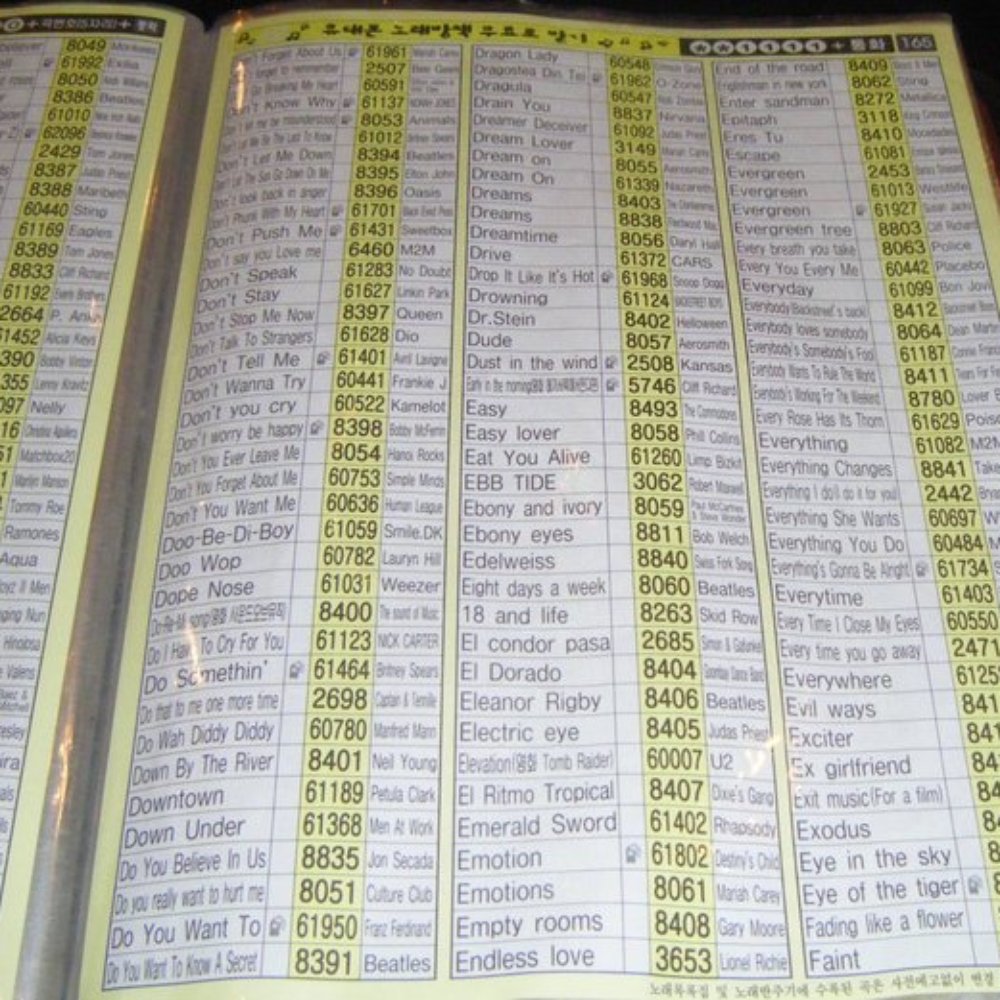 8049
61992 Exilus
8050
8386 Beatles
61010
62096
2429 Tom Jones
8387 Judas Priest
8388 Maribeth
60440 Sting
61169 Eagles
8389 Tom Jones
8833 Cliff Richard
61192
2664 P. Anka
61452 Alicia Keys
390 Bobby Vinton
355 Lenny Kravitz
097 Nelly
16 Christina Aguilera
51 Matchbox20
Marilyn Manson
Tommy Roe
Ramones
Aqua
Boyz II Men
휴대폰 노래방책 무료로 받기
+ 통화 165
Don't Forget About Us 61961 Mariah Carey
2507
60591
Don't Know Why 61137 NORAH JONES
Don't let me be misunderstood 8053 Animals
Don't Let Me Be The Last To Know 61012 Britney Spears
Don't Let Me Down 8394 Beatles
Don't Let The Sun Go Down On Me 8395 Elton John
Don't look back in anger 8396 Oasis
Don't Phunk With My Heart 61701 Black Eyed Peas
Don't Push Me 61431 Sweetbox
Don't say you Love me 6460 M2M
Don't Speak 61283 No Doubt
Don't Stay 61627 Linkin Park
Don't Stop Me Now 8397 Queen
Don't Talk To Strangers 61628 Dio
Don't Tell Me 61401 Avril Lavigne
Don't Wanna Try 60441 Frankie J
Don't you cry 60522 Kamelot
Don't worry be happy 8398 Bobby McFerrin
Don't You Ever Leave Me 8054 Hanoi Rocks
Don't You Forget About Me 60753 Simple Minds
Don't You Want Me 60636 Human League
Doo-Be-Di-Boy 61059 Smile.DK
Doo Wop 60782 Lauryn Hill
Dope Nose 61031 Weezer
Do-Re-Mi song(영화 사운드오브뮤직) 8400 The sound of Music
Do I Have To Cry For You 61123 NICK CARTER
Do Somethin' 61464 Britney Spears
Do that to me one more time 2698 Captain & Tennille
Do Wah Diddy Diddy 60780 Manfred Mann
Down By The River 8401 Neil Young
Downtown 61189 Petula Clark
Down Under 61368 Men At Work
Do You Believe In Us 8835 Jon Secada
Do you really want to hurt me 8051 Culture Club
Do You Want To 61950 Franz Ferdinand
Do You Want To Know A Secret 8391 Beatles
Dragon Lady 60548
Dragostea Din Tei 61962 O-Zone
Dragula 60547 Rob Zombie
Drain You 8837 Nirvana
Dreamer Deceiver 61092 Judas Priest
Dream Lover 3149 Mariah Carey
Dream on 8055 Aerosmith
Dream On 61339 Nazareth
Dreams 8403 The Cranberries
Dreams 8838 Fleetwood Mac
Dreamtime 8056 Daryl Hall
Drive 61372 CARS
Drop It Like It's Hot 61968 Snoop Dogg
Drowning 61124 BACKSTREET BOYS
Dr.Stein 8402 Helloween
Dude 8057 Aerosmith
Dust in the wind 2508 Kansas
5746 Cliff Richard
Easy 8493 The Commodores
Easy lover 8058 Phil Collins
Eat You Alive 61260 Limp Bizkit
EBB TIDE 3062 Robert Maxwell
Ebony and ivory 8059 Paul McCartney & Stevie Wonder
Ebony eyes 8811 Bob Welch
Edelweiss 8840 Swiss Fork Song
Eight days a week 8060 Beatles
18 and life 8263 Skid Row
El condor pasa 2685 Simon & Garfunkel
El Dorado 8404 Goombay Dance Band
Eleanor Rigby 8406 Beatles
Electric eye 8405 Judas Priest
Elevation(영화 Tomb Raider) 60007 U2
El Ritmo Tropical 8407 Dixie's Gang
Emerald Sword 61402 Rhapsody
Emotion 61802 Destiny's Child
Emotions 8061 Mariah Carey
Empty rooms 8408 Gary Moore
Endless love 3653 Lionel Richie
End of the road 8409 Boyz II Men
Englishman in new york 8062 Sting
Enter sandman 8272 Metallica
Epitaph 3118 King Crimson
Eres Tu 8410 Mocedades
Escape 61081 Enrique Iglesias
Evergreen 2453 Barbra Streisand
Evergreen 61013 Westlife
Evergreen 61927 Susan Jacks
Evergreen tree 8803 Cliff Richard
Every breath you take 8063 Police
Every You Every Me 60442 Placebo
Everyday 61099 Bon Jovi
Everybody(Backstreet's back) 8412
Everybody loves somebody 8064 Dean Martin
Everybody's Somebody's Fool 61187 Connie Francis
Everybody Wants To Rule The World 8411 Tears For Fears
Everybody's Working For The Weekend 8780 Lover
Every Rose Has Its Thorn 61629 Poiso
Everything 61082 M2M
Everything Changes 8841 Take
Everything I do(I do it for you) 2442 Brya
Everything She Wants 60697 W
Everything You Do 60484 M
Everything's Gonna Be Alright 61734 S
Everytime 61403
Every Time I Close My Eyes 60550
Every time you go away 2471
Everywhere 6125
Evil ways 841
Exciter 841
Ex girlfriend 84
Exit music(For a film) 84
Exodus 8
Eye in the sky 8
Eye of the tiger 8
Fading like a flower
Faint
노래목록집 및 노래반주기에 수록된 곡은 사전예고없이 변경